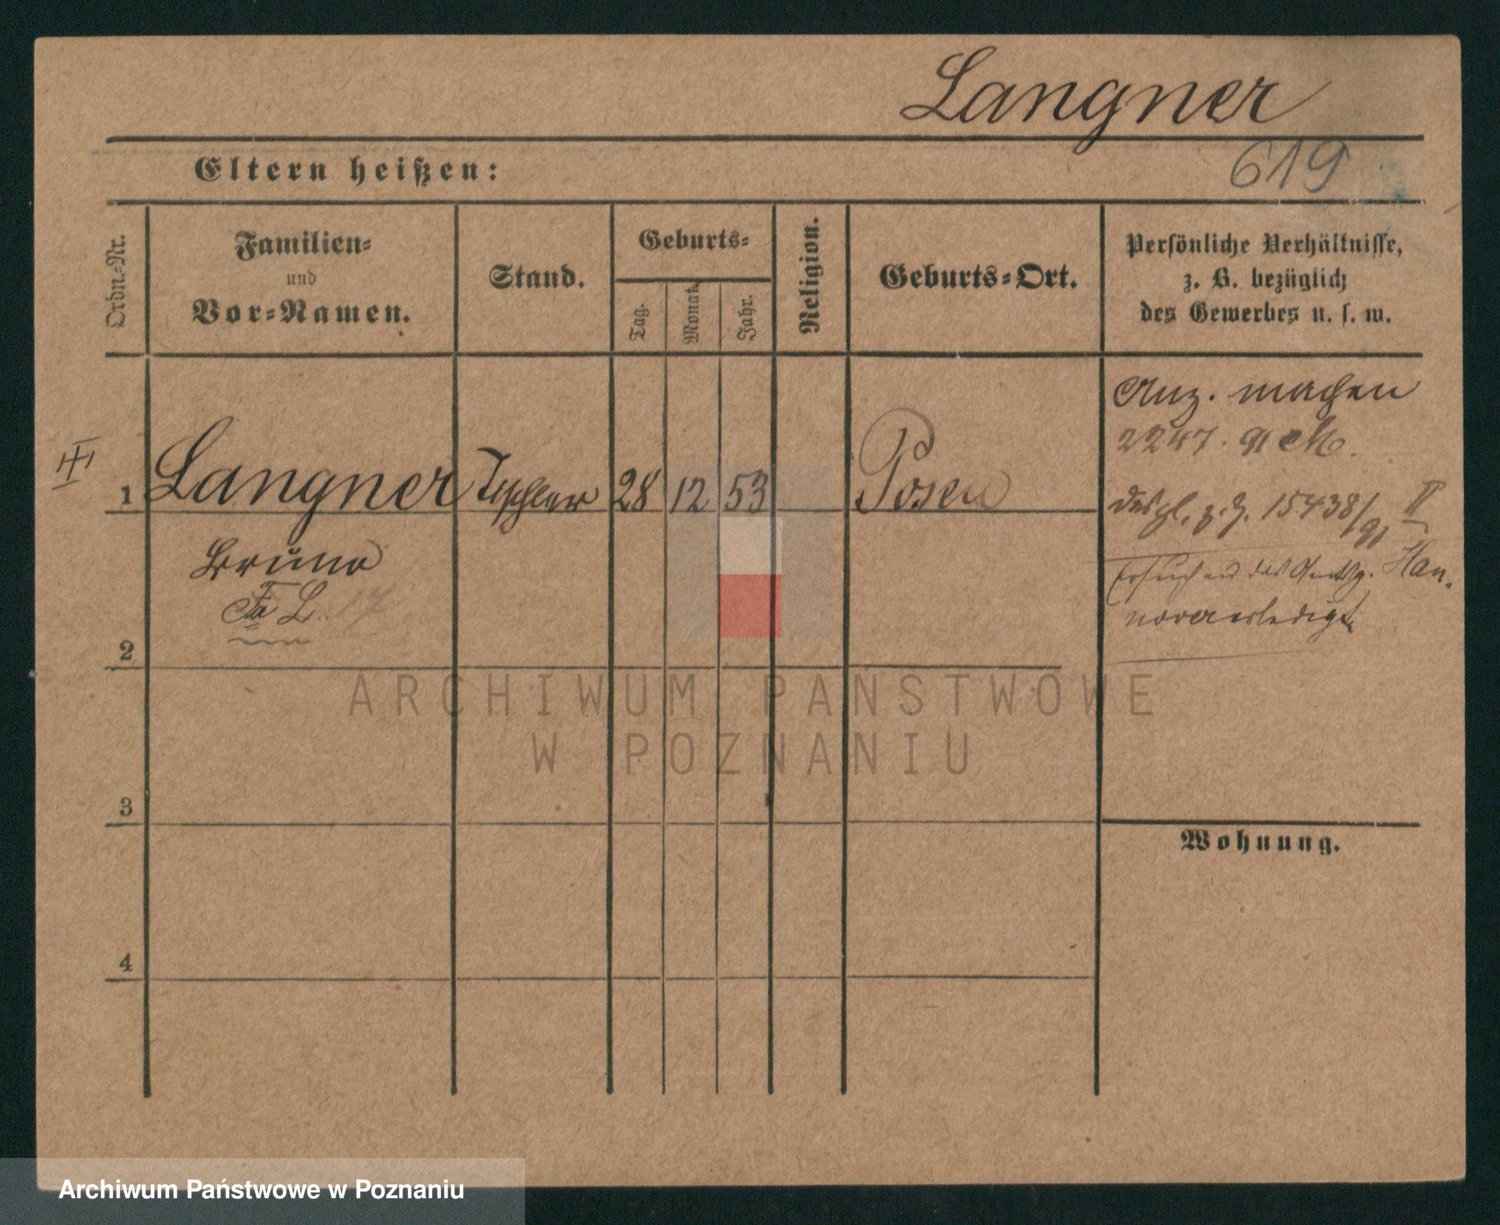 Langner
619
Eltern heißen:
Ordn.-Nr.
Familien-
und
Vor-Namen.
Stand.
Geburts-
Tag.
Monat.
Jahr.
Religion.
Geburts-Ort.
Persönliche Verhältnisse,
z. B. bezüglich
des Gewerbes u. s. w.
1 Langner Tischler 28 12 53 Posen
Bruno
Anz. machen
2247. 91
desgl. z. J. 15438/91 II
Ersuch Han-
nover erledigt
2
3
4
Wohnung.
ARCHIWUM PAŃSTWOWE
W POZNANIU
Archiwum Państwowe w Poznaniu